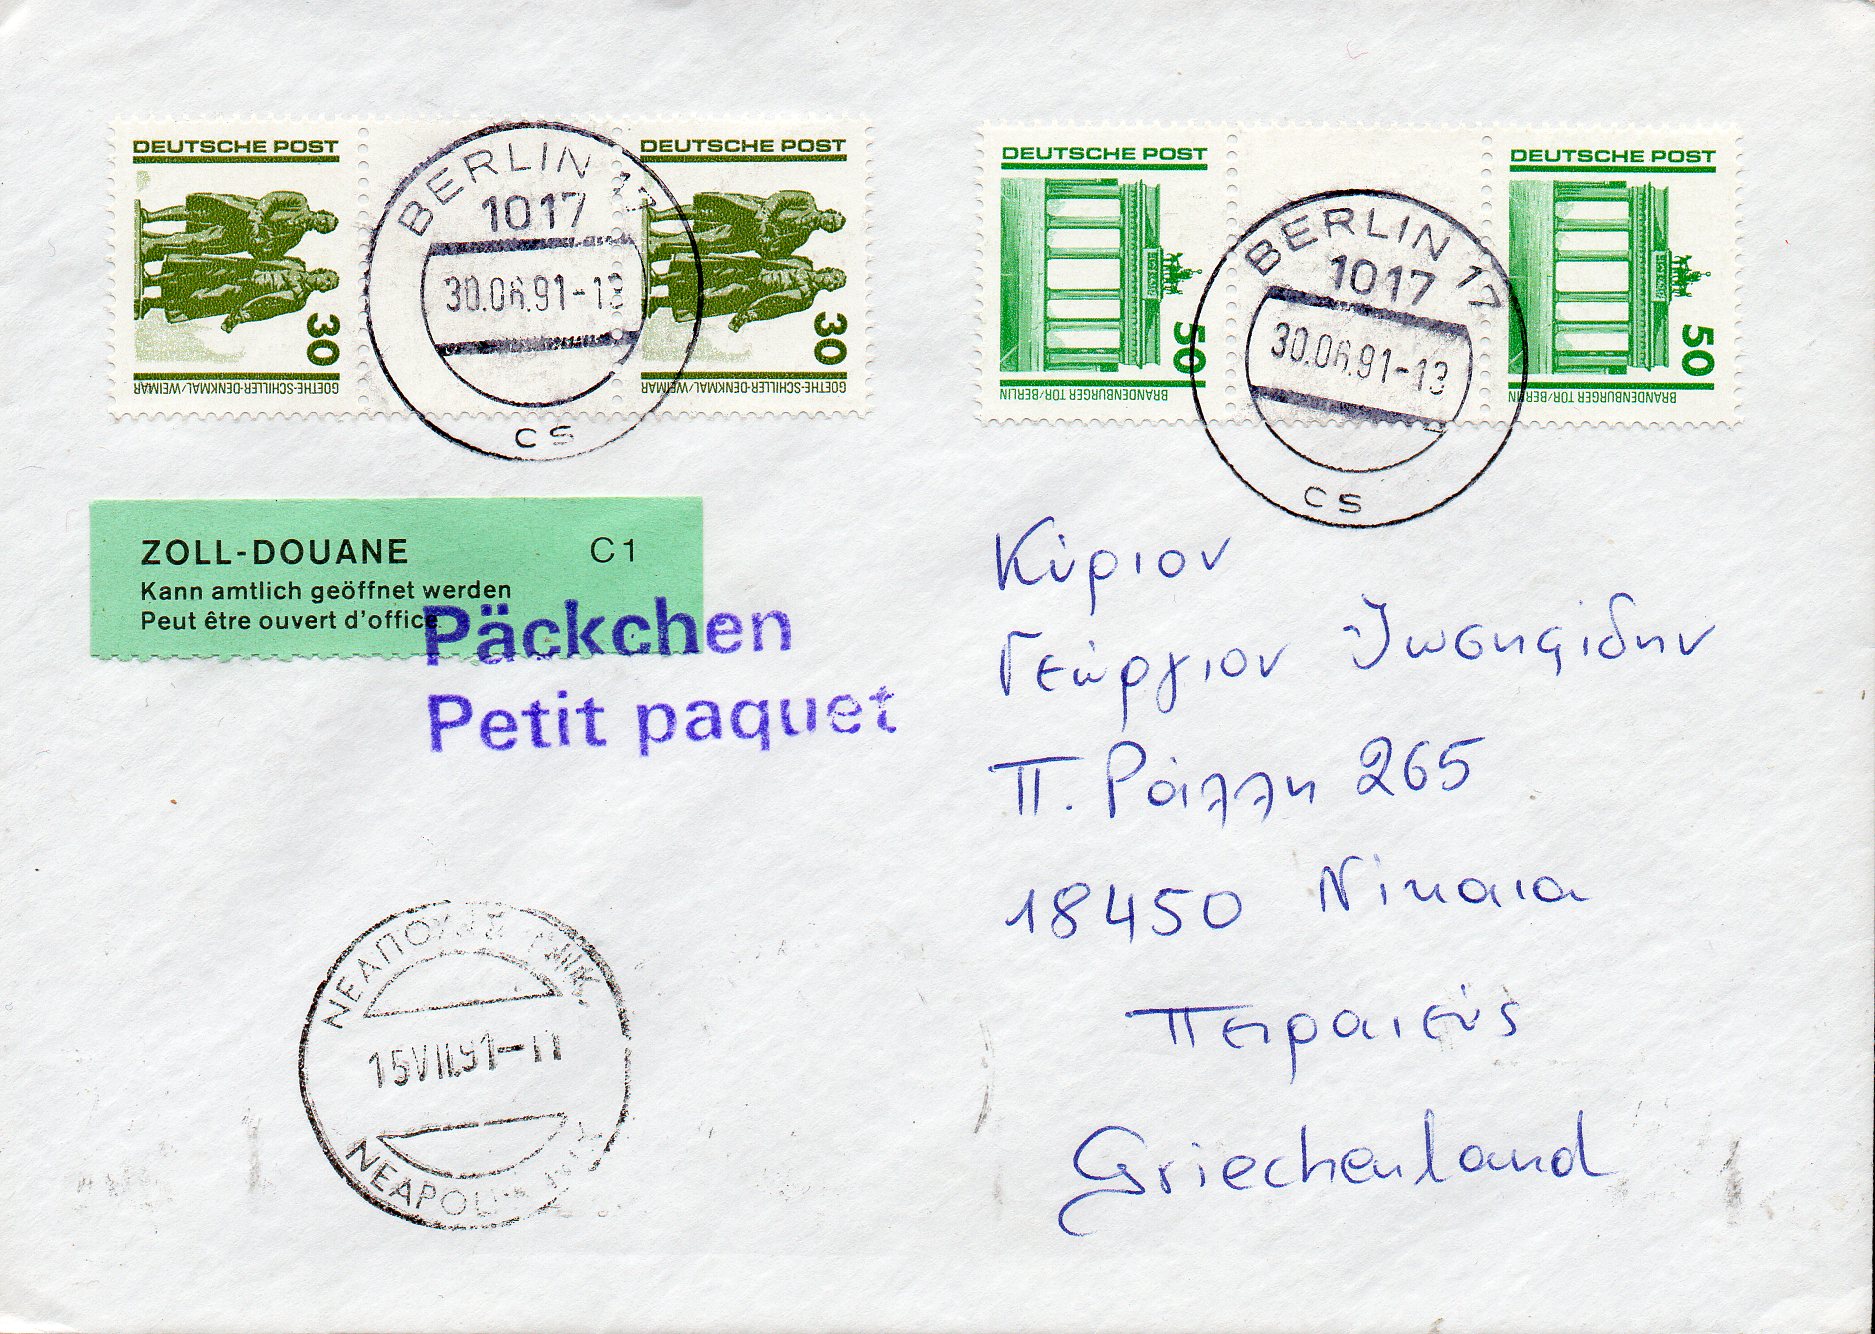 DEUTSCHE POST
30
GOETHE-SCHILLER-DENKMAL/WEIMAR
DEUTSCHE POST
30
GOETHE-SCHILLER-DENKMAL/WEIMAR
BERLIN 17
1017
30.06.91-13
cs
DEUTSCHE POST
50
BRANDENBURGER TOR/BERLIN
DEUTSCHE POST
50
BRANDENBURGER TOR/BERLIN
BERLIN 17
1017
30.06.91-13
cs
ZOLL-DOUANE C1
Kann amtlich geöffnet werden
Peut être ouvert d'office
Päckchen
Petit paquet
Κύριον
Γεώργιον Ιωσηφίδην
Π. Ράλλη 265
18450 Νίκαια
Πειραιεύς
Griechenland
15VII.91-11